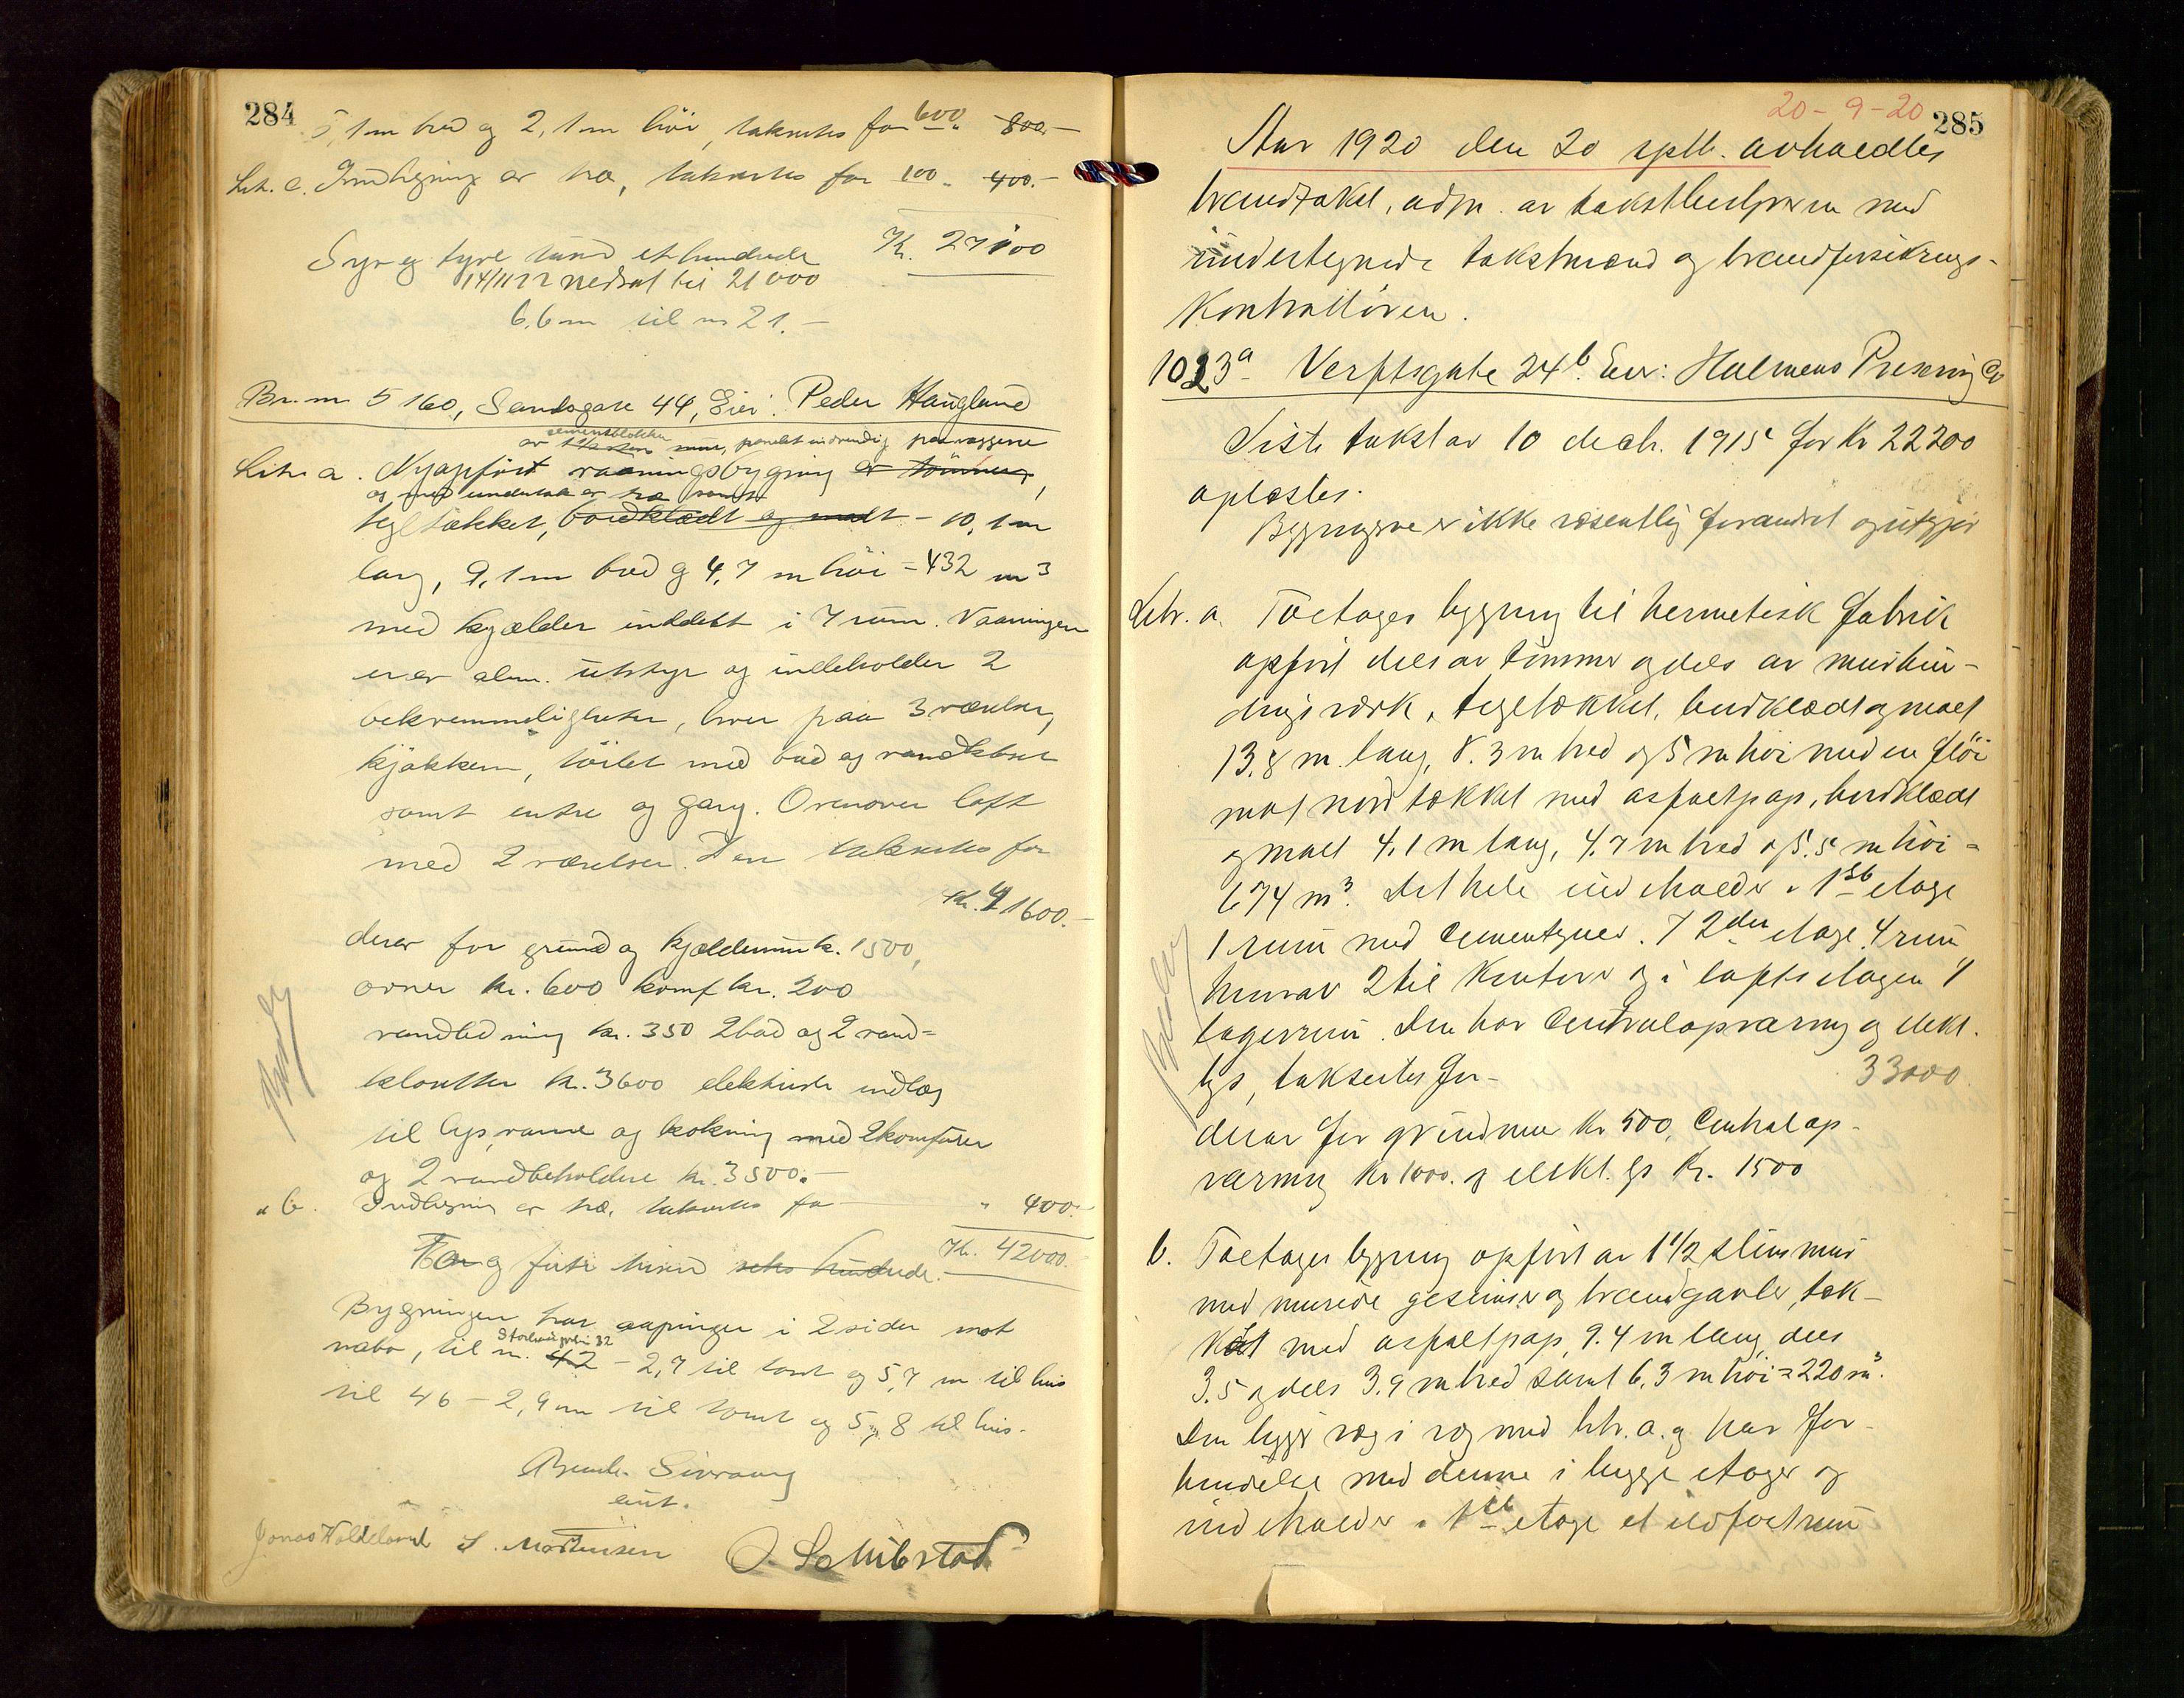 284
5,1 m bred og 2,1 m höi, taksertes for 600 " 800.-
Litr. c. Indhegning av træ, takseres for 100 " 400.-
Kr. 27100
Syv og tyve tusind et hundrede
14/11 22 nedsat til 21000
6,6 m til nr 21. -
Br. nr 5160, Sandsgate 44, Eier: Peder Haugland
av cementblokker mur, panelt indvendig paa væggene
Litr. a. Nyopført vaaningsbygning av tømmer,
og med undertak av træ samt
tegltækket, bordklædt og malt - 10,1 m
lang, 9,1 m bred og 4,7 m höi = 432 m³
med kjælder inddelt i 7 rum. Vaaningen
er av alm. utstyr og indeholder 2
bekvemmeligheter, hver paa 3 værelser,
kjøkken, toilet med bad og vandkloset
samt entre og gang. Ovenover loft
med 2 værelser. Den taksertes for
Kr. 41600.-
derav for grund og kjældermur k. 1500,
ovner kr. 600 komf kr. 200
vandledning kr. 350 2 bad og 2 vand=
klosetter kr. 3600 elektriske indlæg
til lys, varme og kokning med 2 komfurer
og 2 vandbeholdere kr. 3500.-
" b. Indhegning av træ, taksertes for " 400.-
Kr. 42000.
To og firti tusind seks hundrede.
Bygningen har aapninger i 2 sider mot
nabo, til nr. 42 - 2,9 til tomt og 5,7 m til hus
til 46 - 2,9 m til tomt og 5,8 til hus.
Bernh. Sivrang
ent.
Jonas Haldeland S. Mortensen O. Schibstad
20-9-20
285
Aar 1920 den 20 septb. avholdtes
brandtakst, adm. av takstbestyreren med
undertegnede takstmænd og brandforsikrings-
kontrolløren.
1023a Verftsgate 24b. Eier: Holmens Preserving Co
Siste takst av 10 decbr. 1915 for Kr 22200
oplæstes.
Bygningene er ikke væsentlig forandret og utgjør
Litr. a. Toetages bygning til hermetisk fabrik
opført dels av tømmer og dels av murbin-
dingsværk, tegltækket, bordklædt og malt
13.8 m. lang, 8.3 m bred og 5 m höi med en fløi
mot nord tækket med asfaltpap, bordklædt
og malt 4.1 m lang, 4.7 m bred og 5.5 m höi =
674 m³. Det hele indeholder i 1ste etage
1 rum med cementgulv. I 2den etage 4 rum
hvorav 2 til kontorer og i loftsetagen 4
lagerrum. Den har centralopvarmn og elekt.
lys, taksertes for- 33000.
derav for grundmur Kr 500, centralop-
varmning Kr 1000. og elekt. lys Kr. 1500
b. Toetages bygning opført av 1 1/2 stens mur
med murede gesimser og brandgavler, tæk-
ket med asfaltpap, 9.4 m lang, dels
3.5 og dels 3.9 m bred samt 6,3 m höi = 220 m³.
Den ligger væg i væg med litr. a. og har for-
bindelse med denne i begge etager og
indeholder i 1ste etage et ildfast rum